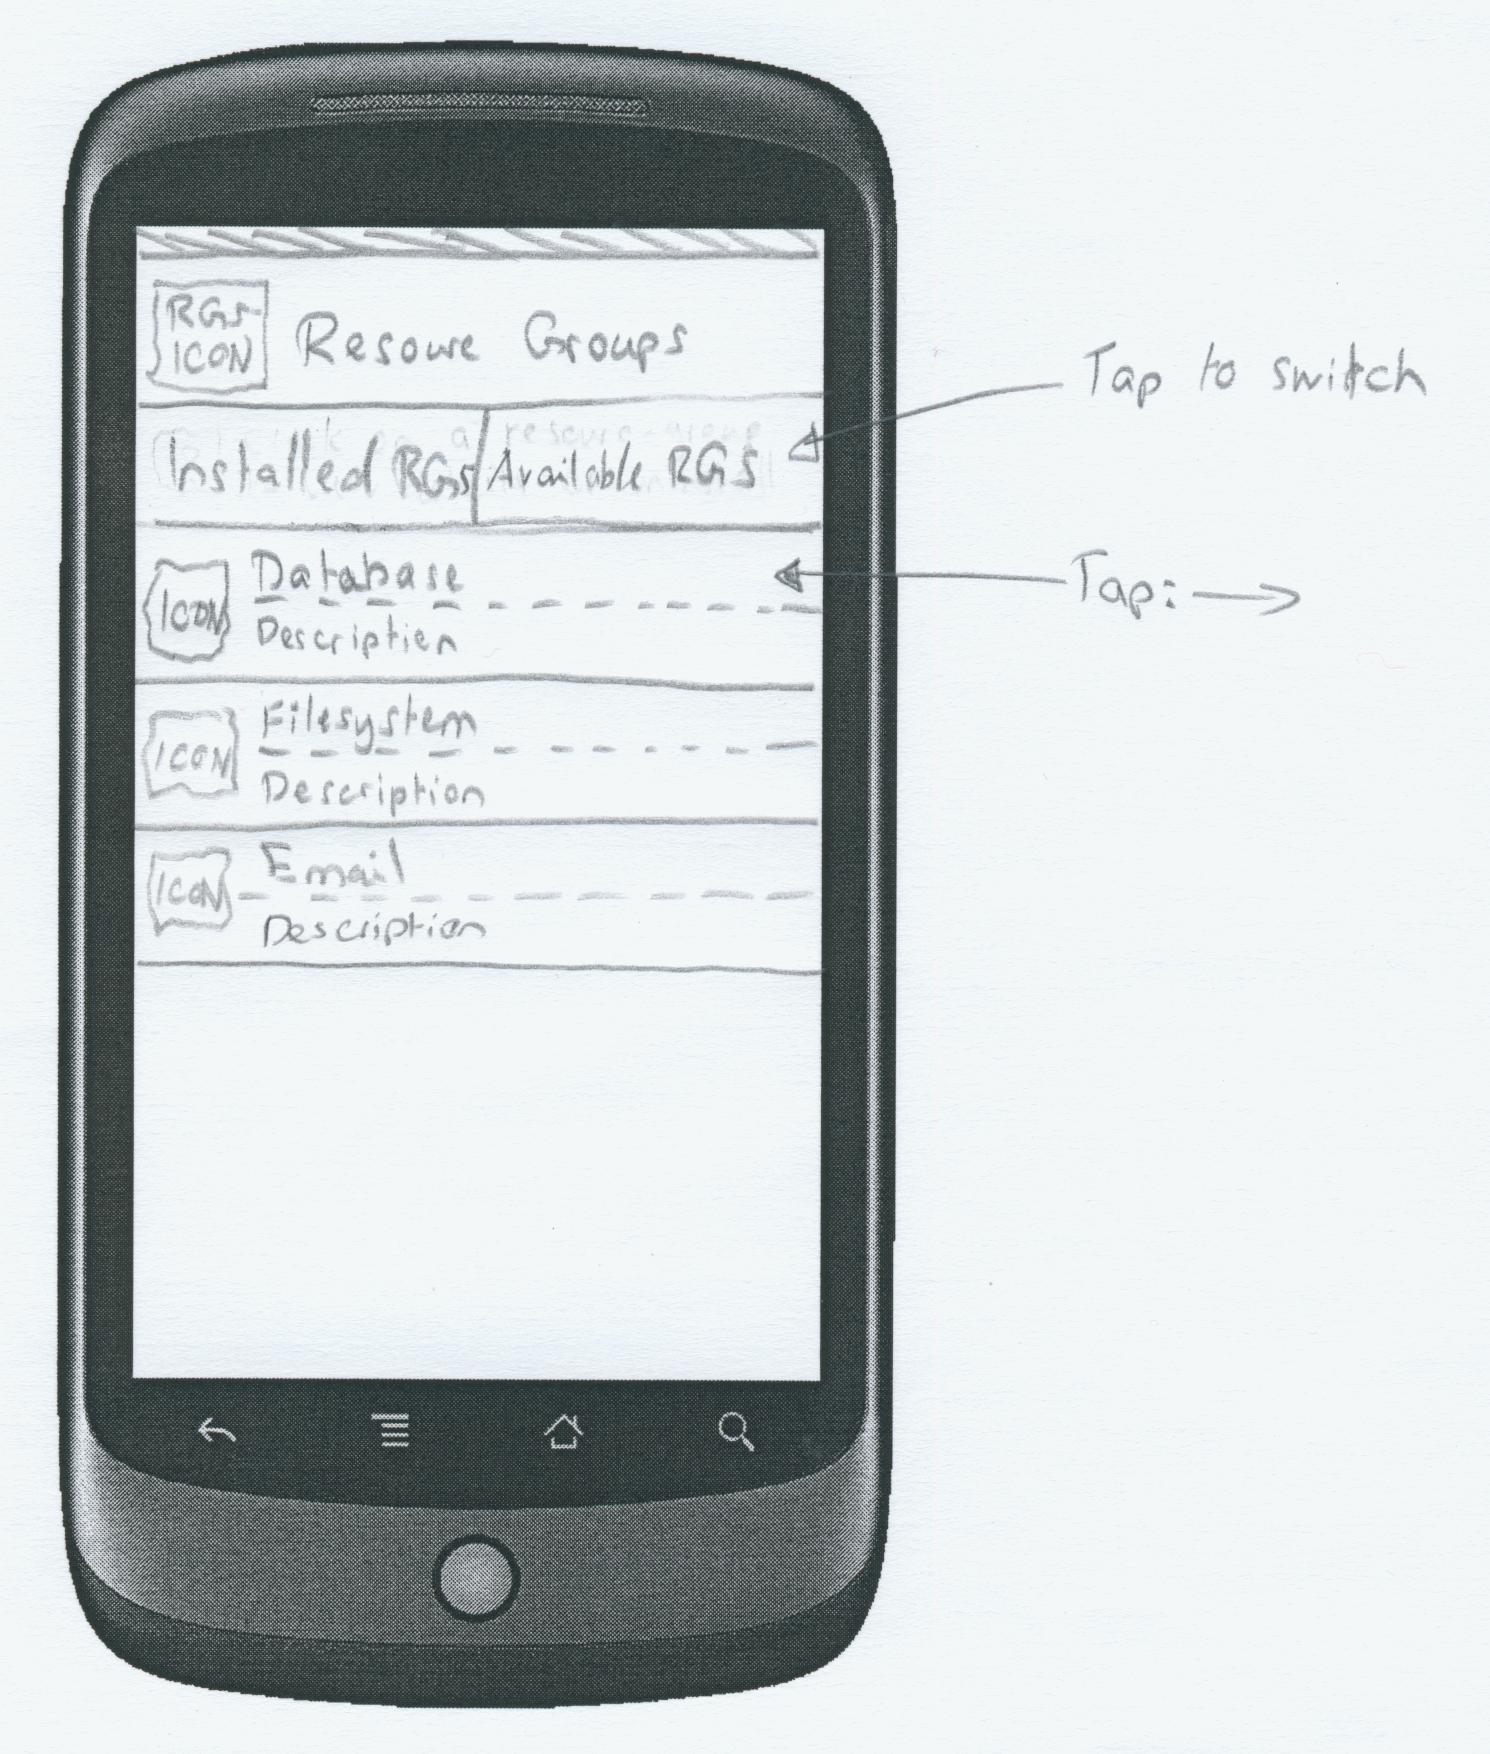 RGs-
ICON
Resoure Groups
Installed RGs
Available RGs
Tap to switch
ICON
Database
Description
Tap:
ICON
Filesystem
Description
ICON
Email
Description